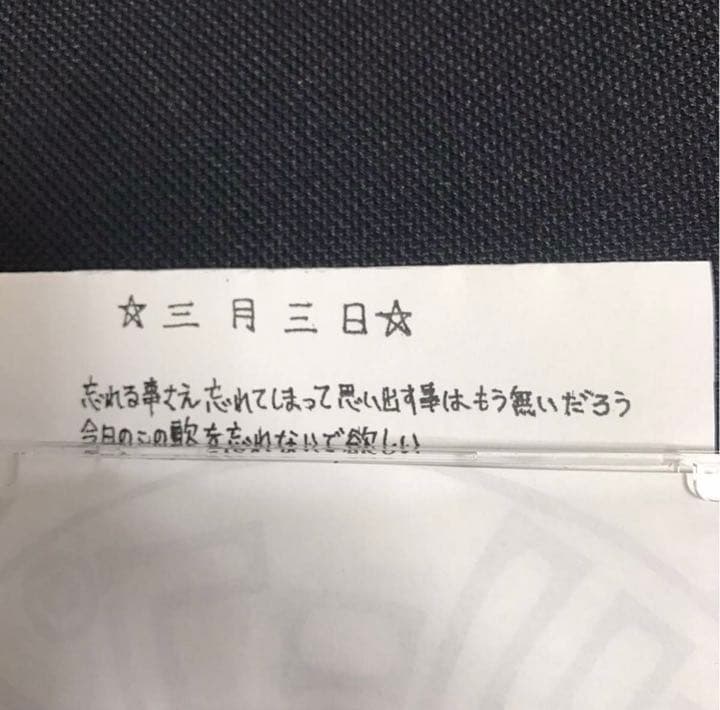 ☆三月三日☆
忘れる事さえ忘れてしまって思い出す事は、もう無いだろう
今日のこの歌を忘れないで欲しい